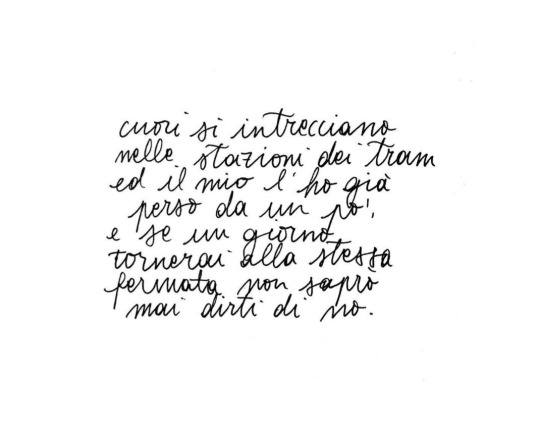 cuori si intrecciano
nelle stazioni dei tram
ed il mio l'ho già
perso da un po',
e se un giorno
tornerai alla stessa
fermata non saprò
mai dirti di no.